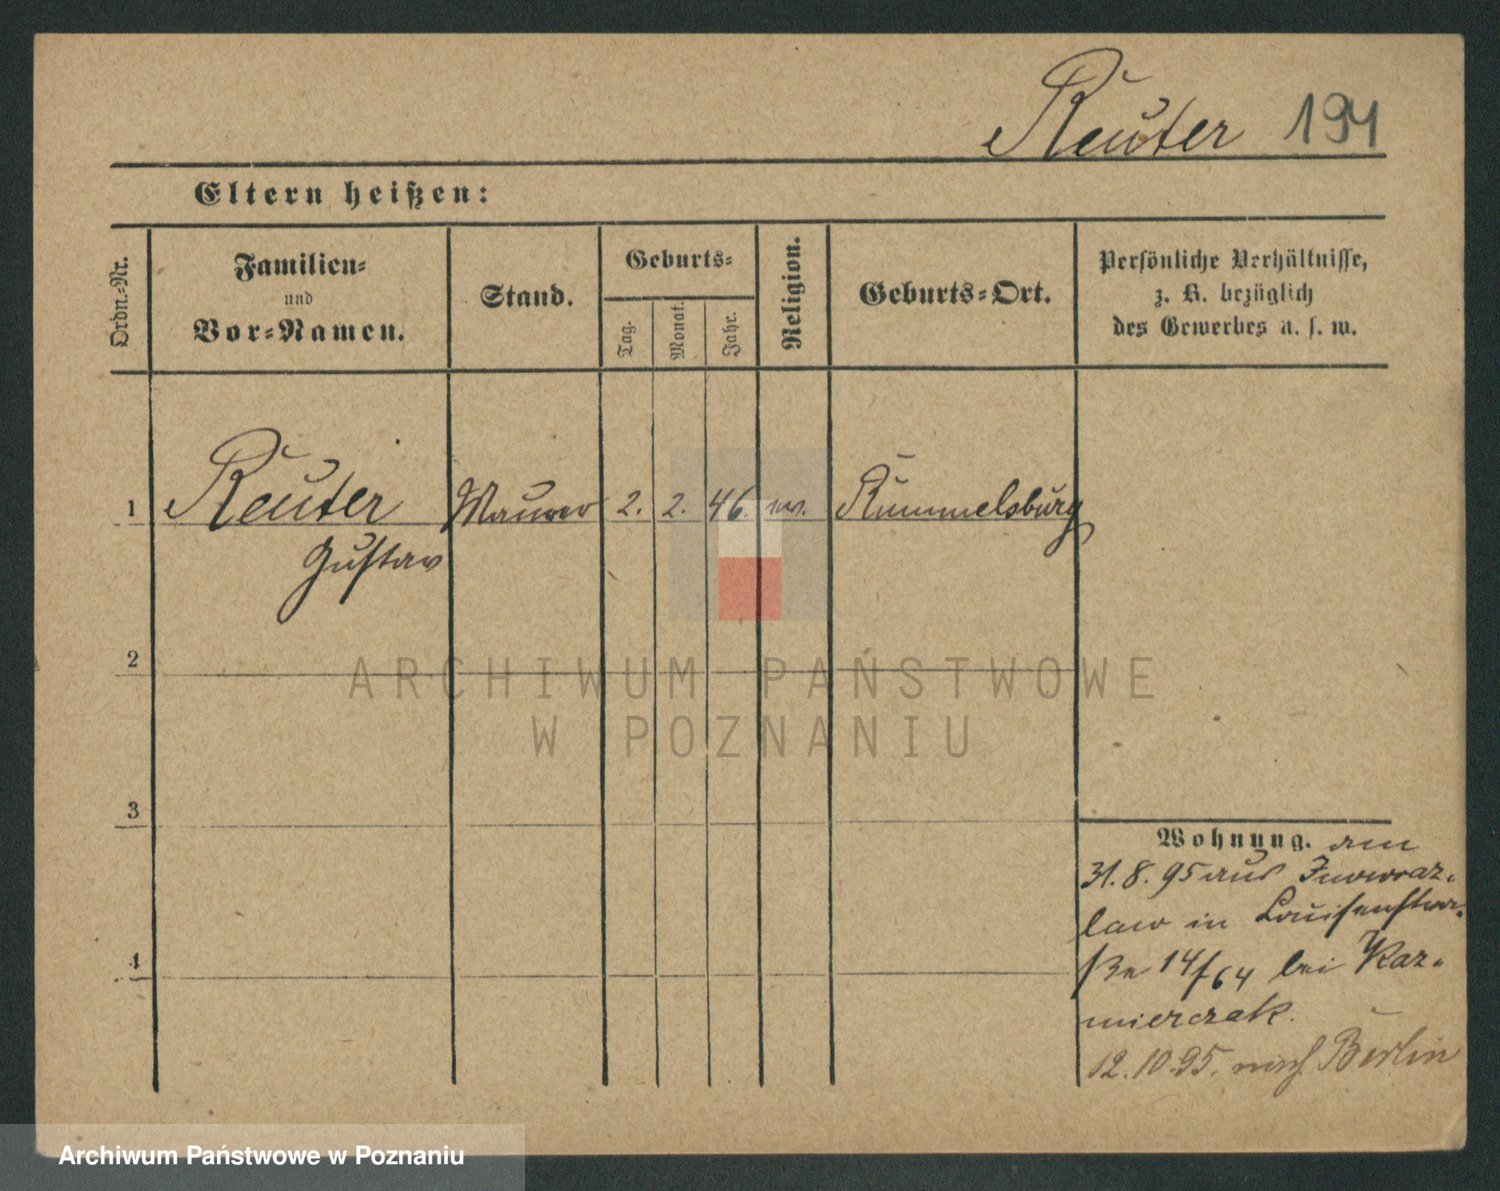 Reuter 194
Eltern heißen:
Ordn.-Nr.
Familien-
und
Vor-Namen.
Stand.
Geburts-
Tag.
Monat.
Jahr.
Religion.
Geburts-Ort.
Persönliche Verhältnisse,
z. B. bezüglich
des Gewerbes u. s. w.
1 Reuter Maurer 2. 2. 46. ev. Rummelsburg
Gustav
2
3
4
Wohnung. am
31.8.95 aus Inowraz-
law in Louisenstra-
ße 14/64 bei Kaz-
mierczak.
12.10.95. nach Berlin
ARCHIWUM PAŃSTWOWE
W POZNANIU
Archiwum Państwowe w Poznaniu